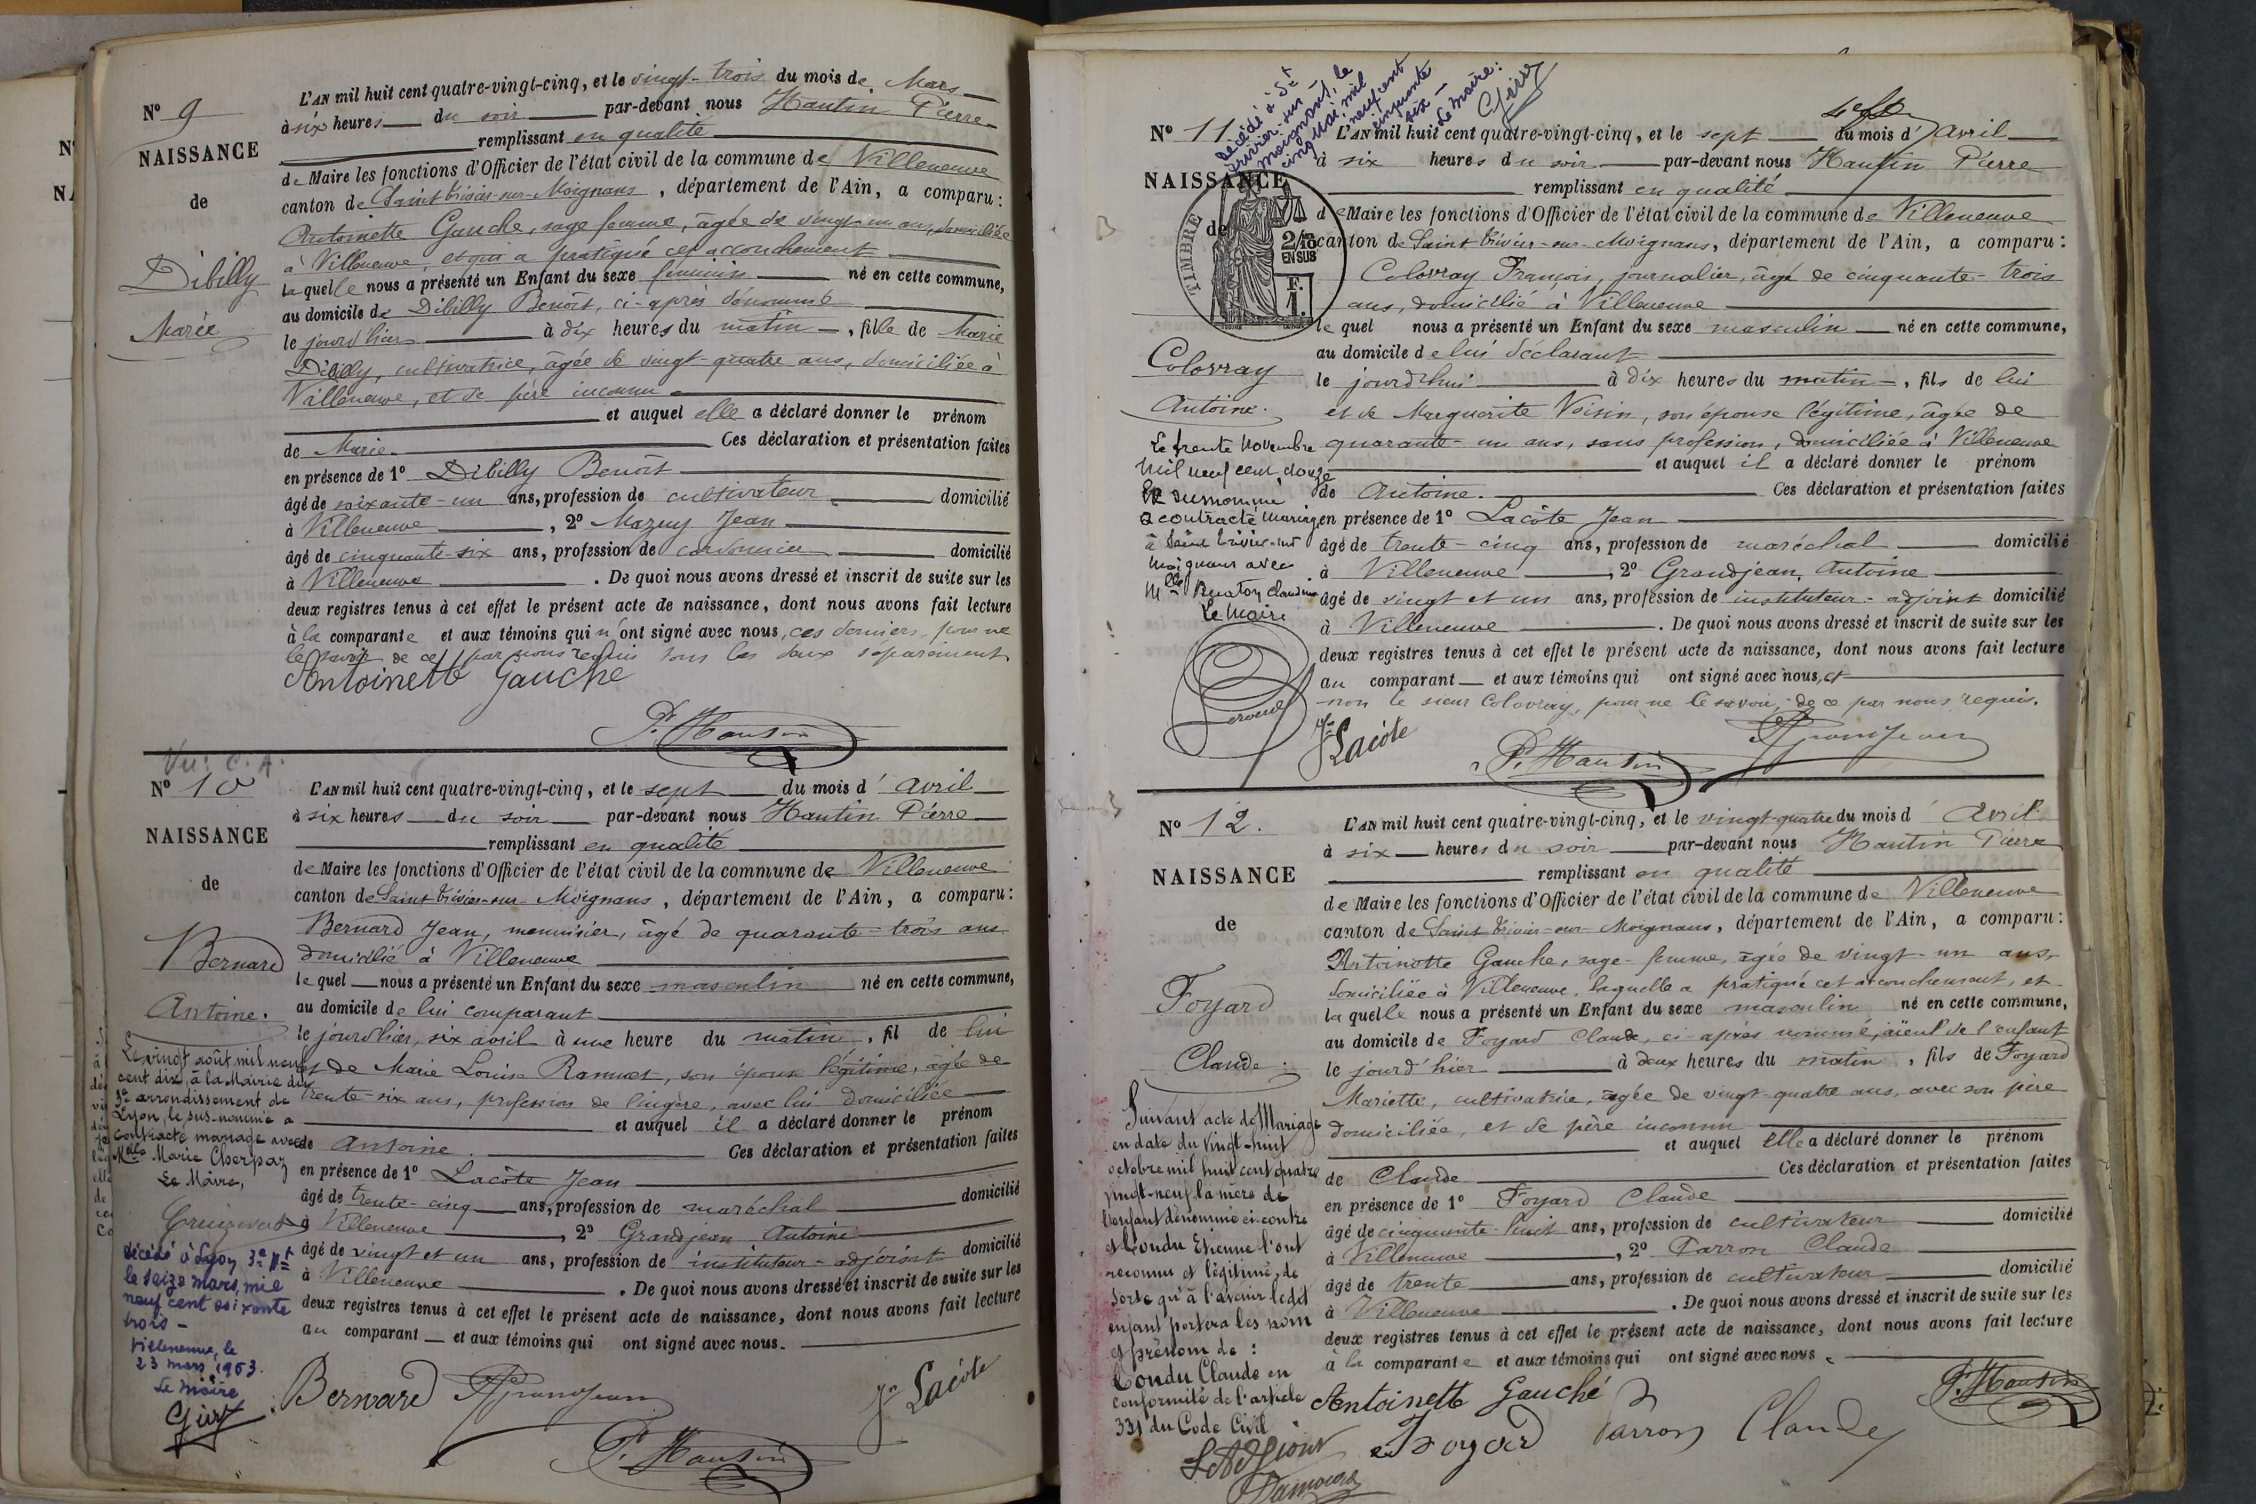 N° 9
NAISSANCE
de
Dibilly
Marie
L'AN mil huit cent quatre-vingt-cinq, et le vingt-trois du mois de Mars
à six heures du soir par-devant nous Hautin Pierre
remplissant en qualité
de Maire les fonctions d'Officier de l'état civil de la commune de Villeneuve
canton de Saint Trivier-sur-Moignans, département de l'Ain, a comparu :
Antoinette Gauche, sage femme, âgée de vingt-un ans, domiciliée
à Villeneuve, et qui a pratiqué cet accouchement
laquelle nous a présenté un Enfant du sexe féminin né en cette commune,
au domicile de Dibilly Benoît, ci-après dénommé
le jourd'hier à dix heures du matin, fille de Marie
Dibilly, cultivatrice, âgée de vingt-quatre ans, domiciliée à
Villeneuve, et de père inconnu
et auquel elle a déclaré donner le prénom
de Marie. Ces déclaration et présentation faites
en présence de 1° Dibilly Benoît
âgé de soixante-un ans, profession de cultivateur domicilié
à Villeneuve, 2° Mazuy Jean
âgé de cinquante-six ans, profession de cordonnier domicilié
à Villeneuve. De quoi nous avons dressé et inscrit de suite sur les
deux registres tenus à cet effet le présent acte de naissance, dont nous avons fait lecture
à la comparante et aux témoins qui n'ont signé avec nous, ces derniers, pour ne
le savoir de ce par nous requis tous les deux séparément
Antoinette Gauche
P. Hautin
Vu: C. A.
N° 10
NAISSANCE
de
Bernard
Antoine.
Le vingt août mil neuf
cent dix, à la Mairie du
3e arrondissement de
Lyon, le sus-nommé a
contracté mariage avec
Melle Marie Cherpaz
Le Maire,
décédé à Lyon 3e Art
le seize mars mil
neuf cent soixante
trois -
Villeneuve, le
23 mars 1963.
Le maire
L'AN mil huit cent quatre-vingt-cinq, et le sept du mois d'avril
à six heures du soir par-devant nous Hautin Pierre
remplissant en qualité
de Maire les fonctions d'Officier de l'état civil de la commune de Villeneuve
canton de Saint Trivier-sur-Moignans, département de l'Ain, a comparu :
Bernard Jean, menuisier, âgé de quarante-trois ans
domicilié à Villeneuve
lequel nous a présenté un Enfant du sexe masculin né en cette commune,
au domicile de lui comparant
le jourd'hier, six avril à une heure du matin, fil de lui
et de Marie Louise, son épouse légitime, âgée de
trente-six ans, profession de lingère, avec lui domiciliée
et auquel il a déclaré donner le prénom
de Antoine. Ces déclaration et présentation faites
en présence de 1° Lacôte Jean
âgé de trente-cinq ans, profession de maréchal domicilié
à Villeneuve, 2° Grandjean Antoine
âgé de vingt et un ans, profession de instituteur-adjoint domicilié
à Villeneuve. De quoi nous avons dressé et inscrit de suite sur les
deux registres tenus à cet effet le présent acte de naissance, dont nous avons fait lecture
au comparant et aux témoins qui ont signé avec nous.
Bernard Grandjean Jn Lacôte
P. Hautin
décédé à St
Trivier-sur-
Moignans, le
cinq mai mil
neuf cent
cinquante
six -
Le Maire :
N° 11.
NAISSANCE
de
TIMBRE
2/10
EN SUS
F.
1.
Colovray
Antoine.
Le trente Novembre
mil neuf cent douze
le susnommé
a contracté mariage
à Saint Trivier-sur
Moignans avec
Mlle Claudine
Le Maire
L'AN mil huit cent quatre-vingt-cinq, et le sept du mois d'avril
à six heures du soir par-devant nous Hautin Pierre
remplissant en qualité
de Maire les fonctions d'Officier de l'état civil de la commune de Villeneuve
canton de Saint Trivier-sur-Moignans, département de l'Ain, a comparu :
Colovray François, journalier, âgé de cinquante-trois
ans, domicilié à Villeneuve
lequel nous a présenté un Enfant du sexe masculin né en cette commune,
au domicile de lui déclarant
le jourd'hui à dix heures du matin, fils de lui
et de Marguerite Voisin, son épouse légitime, âgée de
quarante-un ans, sans profession, domiciliée à Villeneuve
et auquel il a déclaré donner le prénom
de Antoine. Ces déclaration et présentation faites
en présence de 1° Lacôte Jean
âgé de trente-cinq ans, profession de maréchal domicilié
à Villeneuve, 2° Grandjean, Antoine
âgé de vingt et un ans, profession de instituteur-adjoint domicilié
à Villeneuve. De quoi nous avons dressé et inscrit de suite sur les
deux registres tenus à cet effet le présent acte de naissance, dont nous avons fait lecture
au comparant et aux témoins qui ont signé avec nous, et
non le sieur Colovray, pour ne le savoir, de ce par nous requis.
Jn Lacôte Grandjean
P. Hautin
N° 12.
NAISSANCE
de
Foyard
Claude.
Suivant acte de Mariage
en date du vingt-huit
octobre mil huit cent quatre
vingt-neuf la mère de
l'enfant dénommé ci-contre
et Condu Etienne l'ont
reconnu et légitimé, de
sorte qu'à l'avenir ledit
enfant portera les nom
et prénom de :
Condu Claude en
conformité de l'article
331 du Code Civil
L'Adjoint
L'AN mil huit cent quatre-vingt-cinq, et le vingt-quatre du mois d'avril
à six heures du soir par-devant nous Hautin Pierre
remplissant en qualité
de Maire les fonctions d'Officier de l'état civil de la commune de Villeneuve
canton de Saint Trivier-sur-Moignans, département de l'Ain, a comparu :
Antoinette Gauche, sage-femme, âgée de vingt-un ans,
domiciliée à Villeneuve, laquelle a pratiqué cet accouchement, et
laquelle nous a présenté un Enfant du sexe masculin né en cette commune,
au domicile de Foyard Claude, ci-après nommé, aïeul de l'enfant
le jourd'hier à deux heures du matin, fils de Foyard
Mariette, cultivatrice, âgée de vingt-quatre ans, avec son père
domiciliée, et de père inconnu
et auquel elle a déclaré donner le prénom
de Claude Ces déclaration et présentation faites
en présence de 1° Foyard Claude
âgé de cinquante-huit ans, profession de cultivateur domicilié
à Villeneuve, 2° Parron Claude
âgé de trente ans, profession de cultivateur domicilié
à Villeneuve. De quoi nous avons dressé et inscrit de suite sur les
deux registres tenus à cet effet le présent acte de naissance, dont nous avons fait lecture
à la comparante et aux témoins qui ont signé avec nous.
Antoinette Gauché P. Hautin
Foyard Parron Claude